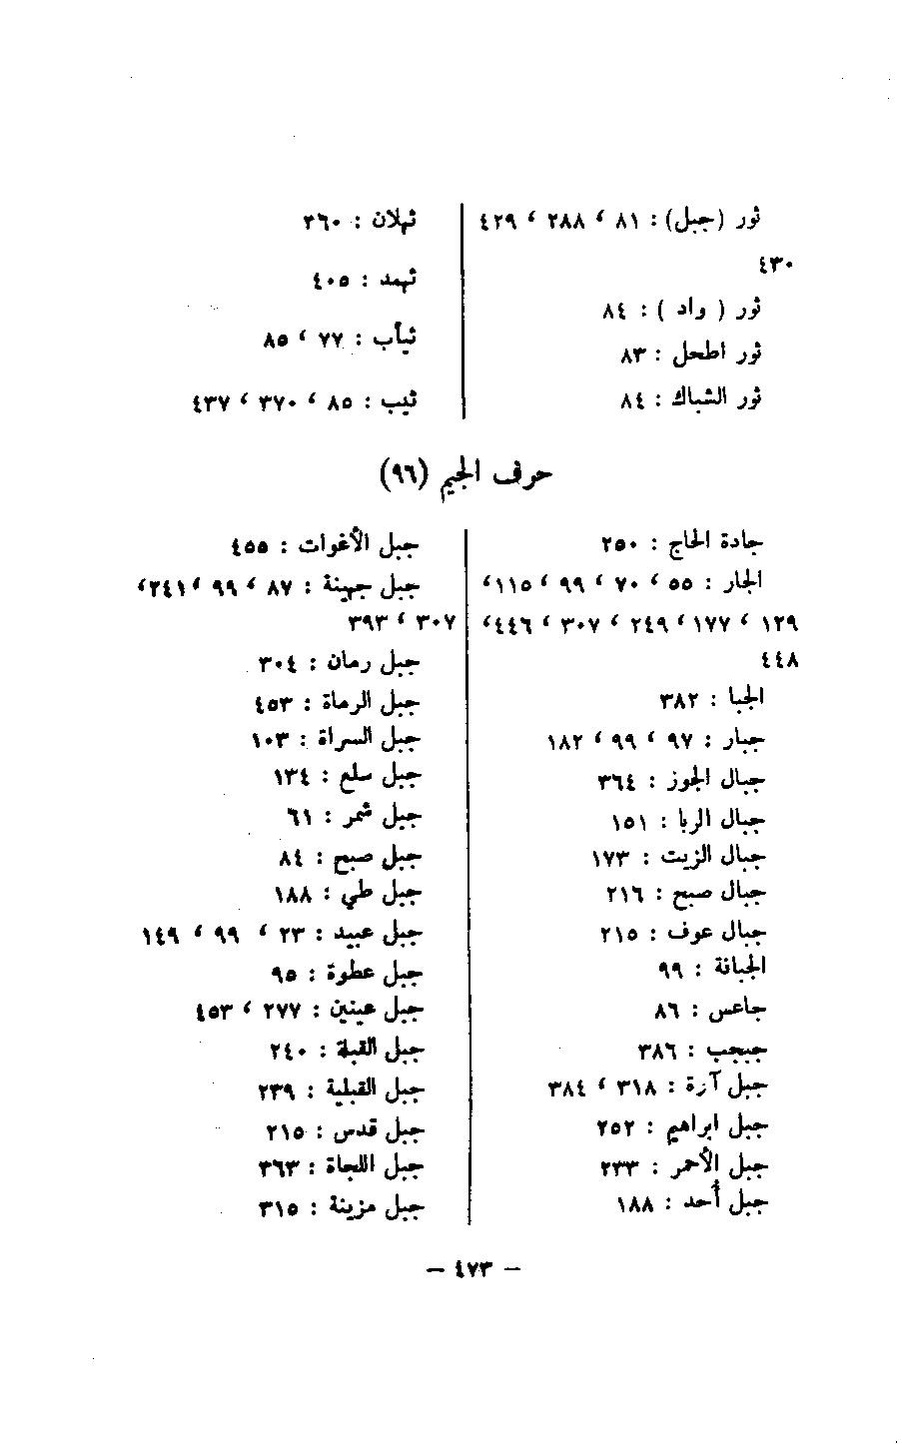 ثور (جبل) : ٨١ ، ٢٨٨ ، ٤٢٩
٤٣٠
ثور ( واد ) : ٨٤
ثور اطحل : ٨٣
ثور الشباك : ٨٤
ثهلان : ٣٦٠
ثهمد : ٤٠٥
ثيأب : ٧٧ ، ٨٥
ثيب : ٨٥ ، ٣٧٠ ، ٤٣٧
حرف الجيم (٩٦)
جادة الحاج : ٢٥٠
الجار : ٥٥ ، ٧٠ ، ٩٩ ، ١١٥،
١٢٩ ، ١٧٧ ، ٢٤٩ ، ٣٠٧ ، ٤٤٦،
٤٤٨
الجبا : ٣٨٢
جبار : ٩٧ ، ٩٩ ، ١٨٢
جبال الجوز : ٣٦٤
جبال الربا : ١٥١
جبال الزيت : ١٧٣
جبال صبح : ٢١٦
جبال عوف : ٢١٥
الجبانة : ٩٩
جاعس : ٨٦
جبجب : ٣٨٦
جبل آرة : ٣١٨ ، ٣٨٤
جبل ابراهيم : ٢٥٢
جبل الأحمر : ٢٣٣
جبل أحد : ١٨٨
جبل الأغوات : ٤٥٥
جبل جهينة : ٨٧ ، ٩٩ ، ٢٤١،
٣٠٧ ، ٣٩٣
جبل رمان : ٣٠٤
جبل الرماة : ٤٥٣
جبل السراة : ١٠٣
جبل سلع : ١٣٤
جبل شمر : ٦١
جبل صبح : ٨٤
جبل طي : ١٨٨
جبل عبيد : ٢٣ ، ٩٩ ، ١٤٩
جبل عطوة : ٩٥
جبل عينين : ٢٧٧ ، ٤٥٣
جبل القبلة : ٢٤٠
جبل القبلية : ٢٣٩
جبل قدس : ٢١٥
جبل اللجاة : ٣٦٣
جبل مزينة : ٣١٥
— ٤٧٣ —